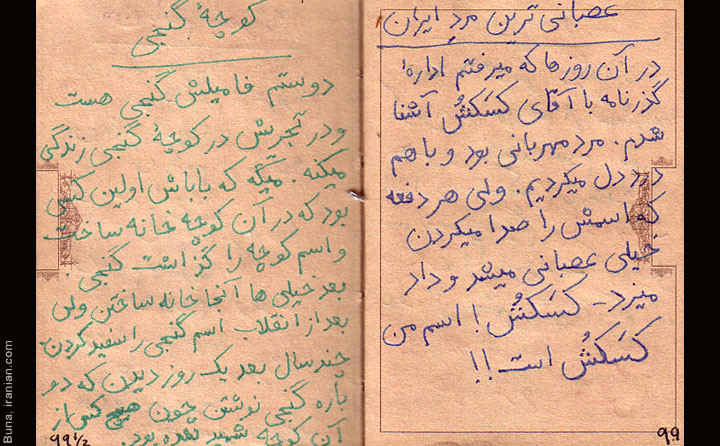 عصبانی ترین مرد ایران
در آن روزها که میرفتم ادارهٔ
گذرنامه با آقای کَسکَشُ آشنا
شدم. مرد مهربانی بود و با هم
درد دل میکردیم. ولی هر دفعه
که اسمش را صدا میکردن
خیلی عصبانی میشد و داد
میزد - کَسکَشُ! اسم من
کَسکَشُ است!!
99
کوچهٔ گنجی
دوستم فامیلش گنجی هست
و در تجریش در کوچهٔ گنجی زندگی
میکنه. میگه که باباش اولین کسی
بود که در آن کوچه خانه ساخت
و اسم کوچه را گذاشت گنجی.
بعد خیلی ها آنجا خانه ساختن ولی
بعد از انقلاب اسم گنجی را سفید کردن.
چند سال بعد یک روز دیدن که دو
باره گنجی نوشتن چون هیچ کس از
آن کوچه شهید نشده بود.
99 1/2
Buna, iranian.com